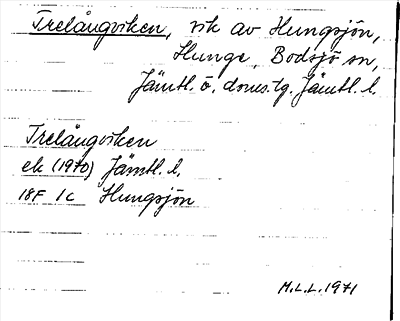 Trelångviken, vik av Hungsjön,
Hunge, Bodsjö sn,
Jämtl. ö. doms.tg. Jämtl. l.
Trelångviken
ek (1970) Jämtl. l.
18F 1c Hungsjön
M.L.L. 1971